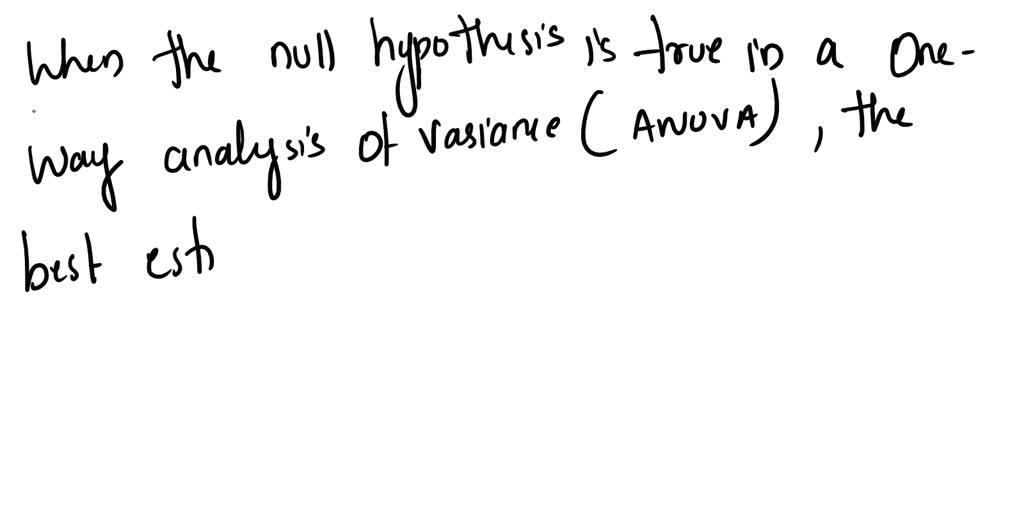 When the null hypothesis is true in a One-
way analysis of variance (ANOVA), the
best esti